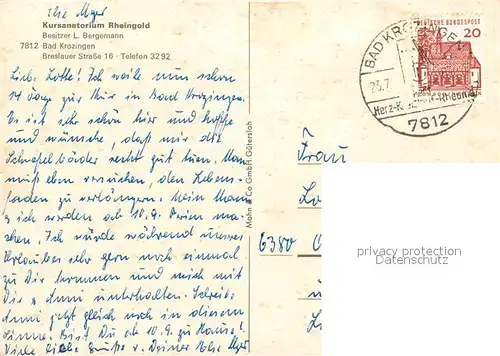 Ilse Mger
Kursanatorium Rheingold
Besitzer L. Bergemann
7812 Bad Krozingen
Breslauer Straße 16 · Telefon 32 92
Liebe Lotte! Ich weile nun schon
14 Tage zur Kur in Bad Krozingen.
Es ist sehr schön hier und hoffe
und wünsche, daß mir die
Schwefelbäder recht gut tuen. Man
muß eben versuchen, den Lebens-
faden zu verlängern. Mein Mann
& ich werden ab 10.9. Ferien ma-
chen. Ich würde während unseres
Urlaubes sehr gern noch einmal
zu Dir kommen und mich mit
Dir & unterhalten. Schreib
jetzt gleich noch in diesem
Sinne. Bist Du ab 10.9. zu Hause?
Viele liebe Grüße v. Deiner Ilse Mger
Mohn & Co GmbH Gütersloh
DEUTSCHE BUNDESPOST
20
BAD KROZINGEN
7812
Frau
6380
privacy protection
Datenschutz